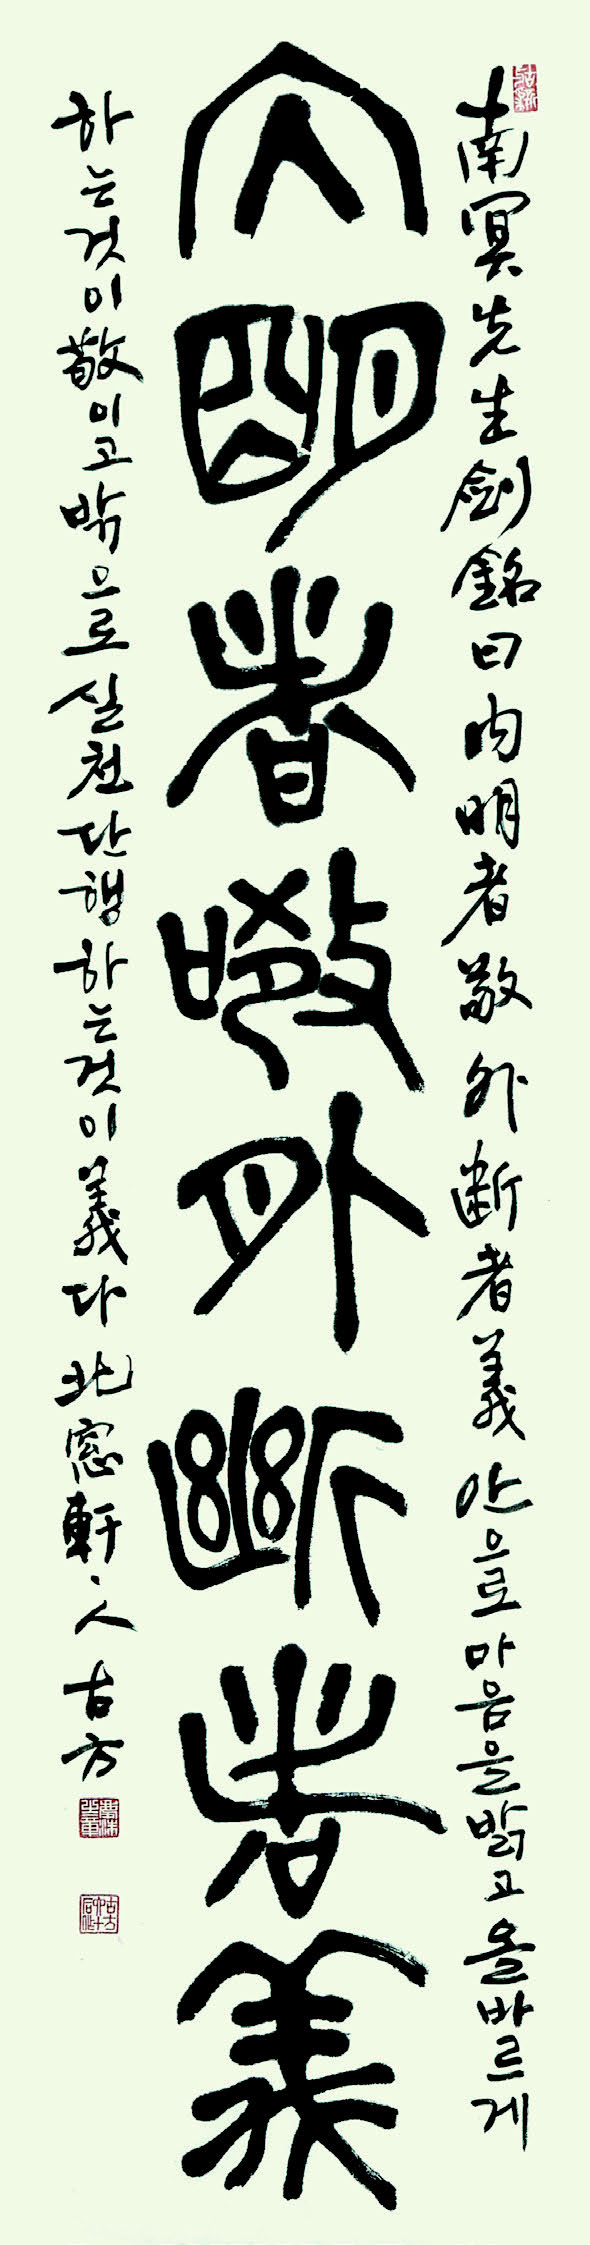 南冥先生劍銘曰內明者敬外斷者義 안으로 마음을 밝고 올바르게
內明者敬外斷者義
하는 것이 敬이고 밖으로 실천 단행하는 것이 義다 北窓軒、人 古方